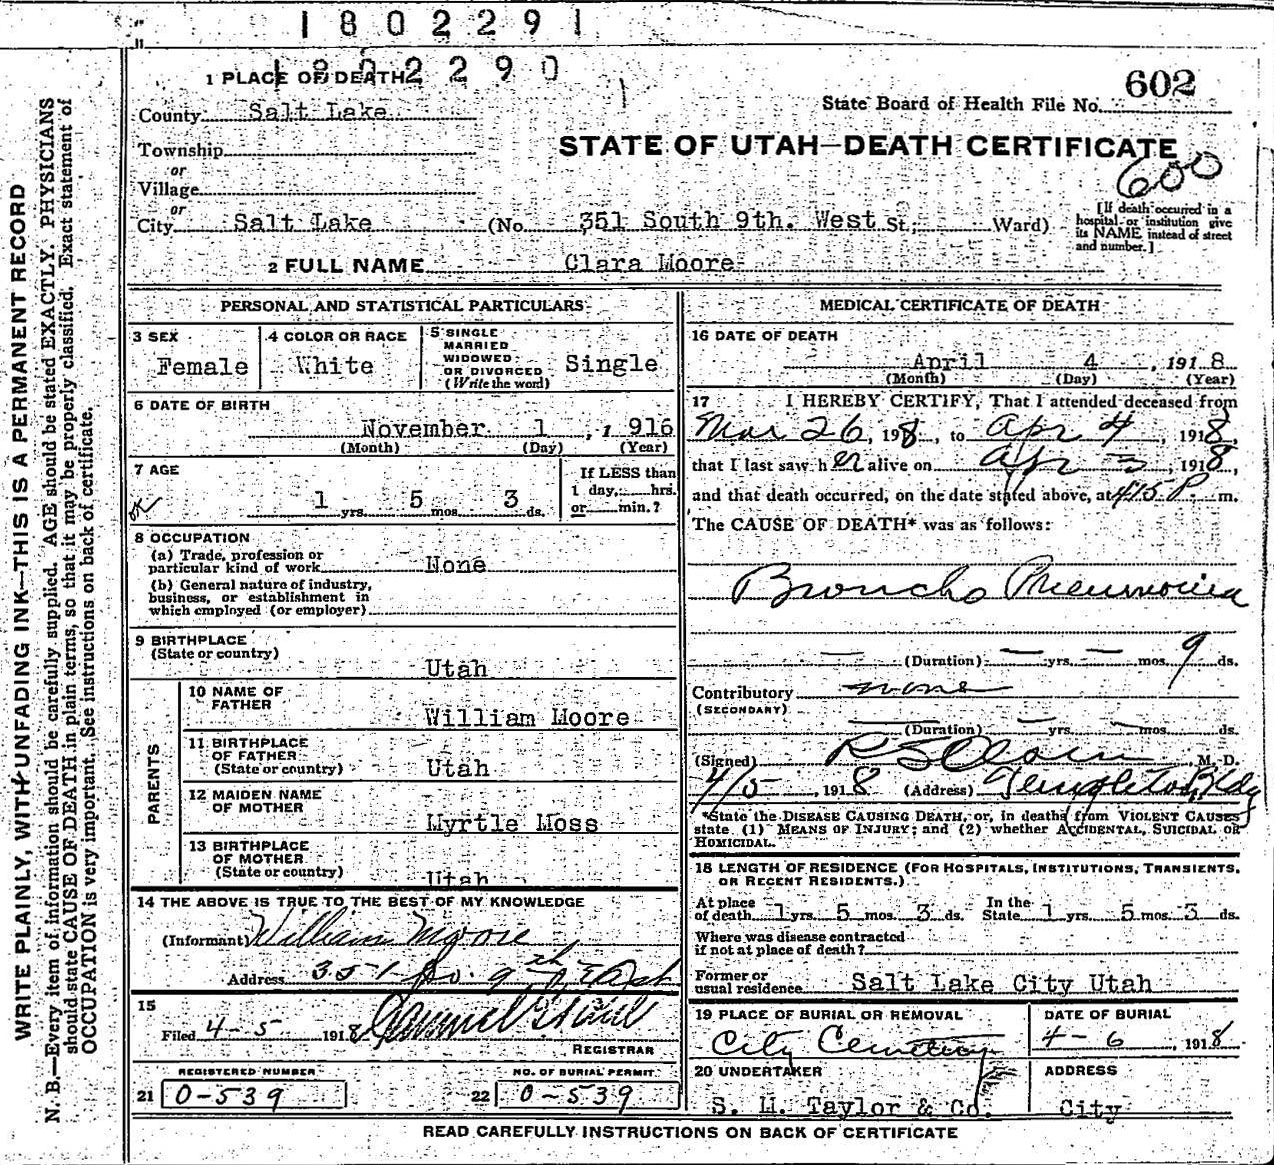 1802291
1802290
1 PLACE OF DEATH
County Salt Lake
Township
or
Village
or
City Salt Lake (No. 351 South 9th. West St; Ward)
602
State Board of Health File No.
STATE OF UTAH—DEATH CERTIFICATE
600
[If death occurred in a
hospital or institution give
its NAME instead of street
and number.]
2 FULL NAME Clara Moore
PERSONAL AND STATISTICAL PARTICULARS
3 SEX
Female
4 COLOR OR RACE
White
5 SINGLE
MARRIED
WIDOWED
OR DIVORCED
(Write the word)
Single
6 DATE OF BIRTH
November 1, 1916
(Month) (Day) (Year)
7 AGE
OK
1 yrs. 5 mos. 3 ds.
If LESS than
1 day, hrs.
or min.?
8 OCCUPATION
(a) Trade, profession or
particular kind of work None
(b) General nature of industry,
business, or establishment in
which employed (or employer)
9 BIRTHPLACE
(State or country)
Utah
PARENTS
10 NAME OF
FATHER
William Moore
11 BIRTHPLACE
OF FATHER
(State or country) Utah
12 MAIDEN NAME
OF MOTHER
Myrtle Moss
13 BIRTHPLACE
OF MOTHER
(State or country) Utah
14 THE ABOVE IS TRUE TO THE BEST OF MY KNOWLEDGE
(Informant) William Moore
Address 351 So. 9th
15
Filed 4-5 1918
REGISTRAR
REGISTERED NUMBER
21 0-539
NO. OF BURIAL PERMIT
22 0-539
MEDICAL CERTIFICATE OF DEATH
16 DATE OF DEATH
April 4, 1918
(Month) (Day) (Year)
17 I HEREBY CERTIFY, That I attended deceased from
Mar 26, 1918, to Apr 4, 1918,
that I last saw her alive on Apr 3, 1918,
and that death occurred, on the date stated above, at 415 P. m.
The CAUSE OF DEATH* was as follows:
Broncho Pneumonia
(Duration) — yrs. — mos. 9 ds.
Contributory none
(SECONDARY)
(Duration) — yrs. — mos. ds.
(Signed) M. D.
4/5, 1918 (Address) Templeton Bldg
*State the DISEASE CAUSING DEATH, or, in deaths from VIOLENT CAUSES
state (1) MEANS OF INJURY; and (2) whether ACCIDENTAL, SUICIDAL OR
HOMICIDAL.
18 LENGTH OF RESIDENCE (FOR HOSPITALS, INSTITUTIONS, TRANSIENTS,
OR RECENT RESIDENTS.)
At place
of death 1 yrs. 5 mos. 3 ds.
In the
State 1 yrs. 5 mos. 3 ds.
Where was disease contracted
if not at place of death?
Former or
usual residence Salt Lake City Utah
19 PLACE OF BURIAL OR REMOVAL
City Cemetery
DATE OF BURIAL
4-6, 1918
20 UNDERTAKER
S. M. Taylor & Co.
ADDRESS
City
READ CAREFULLY INSTRUCTIONS ON BACK OF CERTIFICATE
WRITE PLAINLY, WITH UNFADING INK—THIS IS A PERMANENT RECORD
N. B.—Every item of information should be carefully supplied. AGE should be stated EXACTLY. PHYSICIANS
should state CAUSE OF DEATH in plain terms, so that it may be properly classified. Exact statement of
OCCUPATION is very important. See instructions on back of certificate.